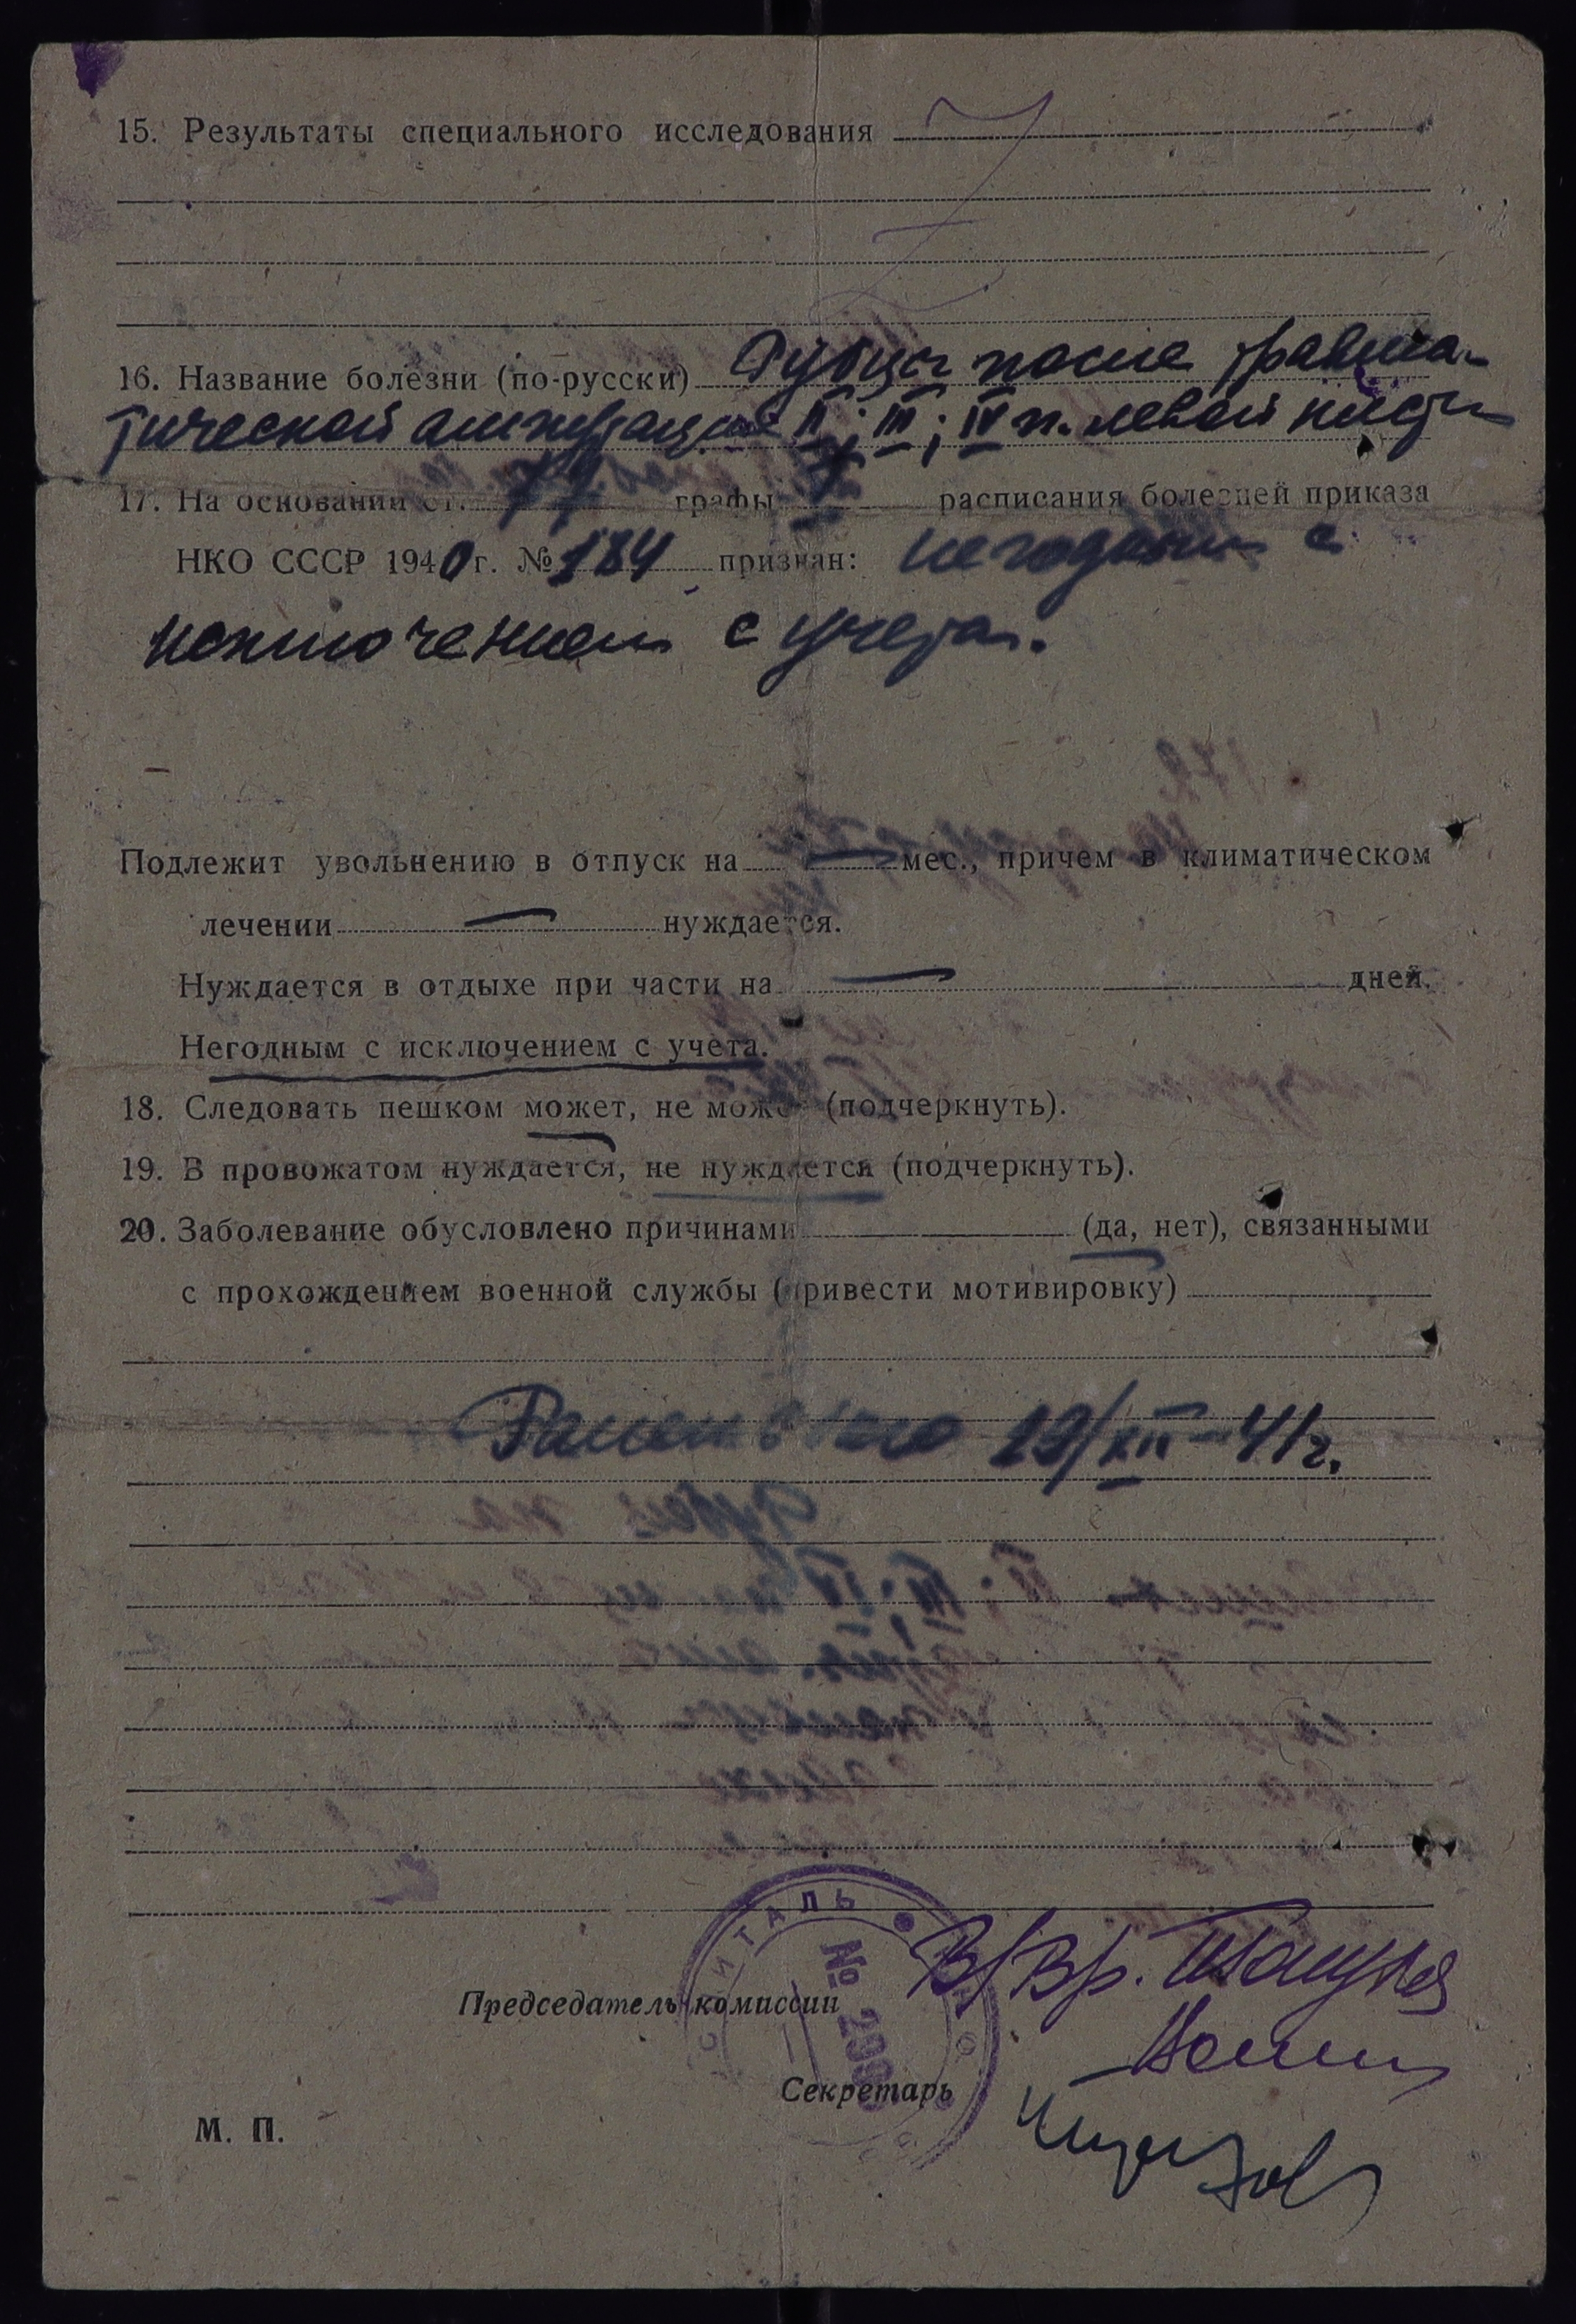 15. Результаты специального исследования
16. Название болезни (по-русски) Рубцы после травма-
тической ампутации II; III; IV п. левой кисти
17. На основании ст. 77 графы I расписания болезней приказа
НКО СССР 1940 г. № 184 признан: негодным с
исключением с учета.
Подлежит увольнению в отпуск на — мес., причем в климатическом
лечении — нуждается.
Нуждается в отдыхе при части на — дней.
Негодным с исключением с учета.
18. Следовать пешком может, не может (подчеркнуть).
19. В провожатом нуждается, не нуждается (подчеркнуть).
20. Заболевание обусловлено причинами (да, нет), связанными
с прохождением военной службы (привести мотивировку)
Ранен 19/XII-41г.
ГОСПИТАЛЬ
№
Председатель комиссии В/Вр.
Секретарь
М. П.